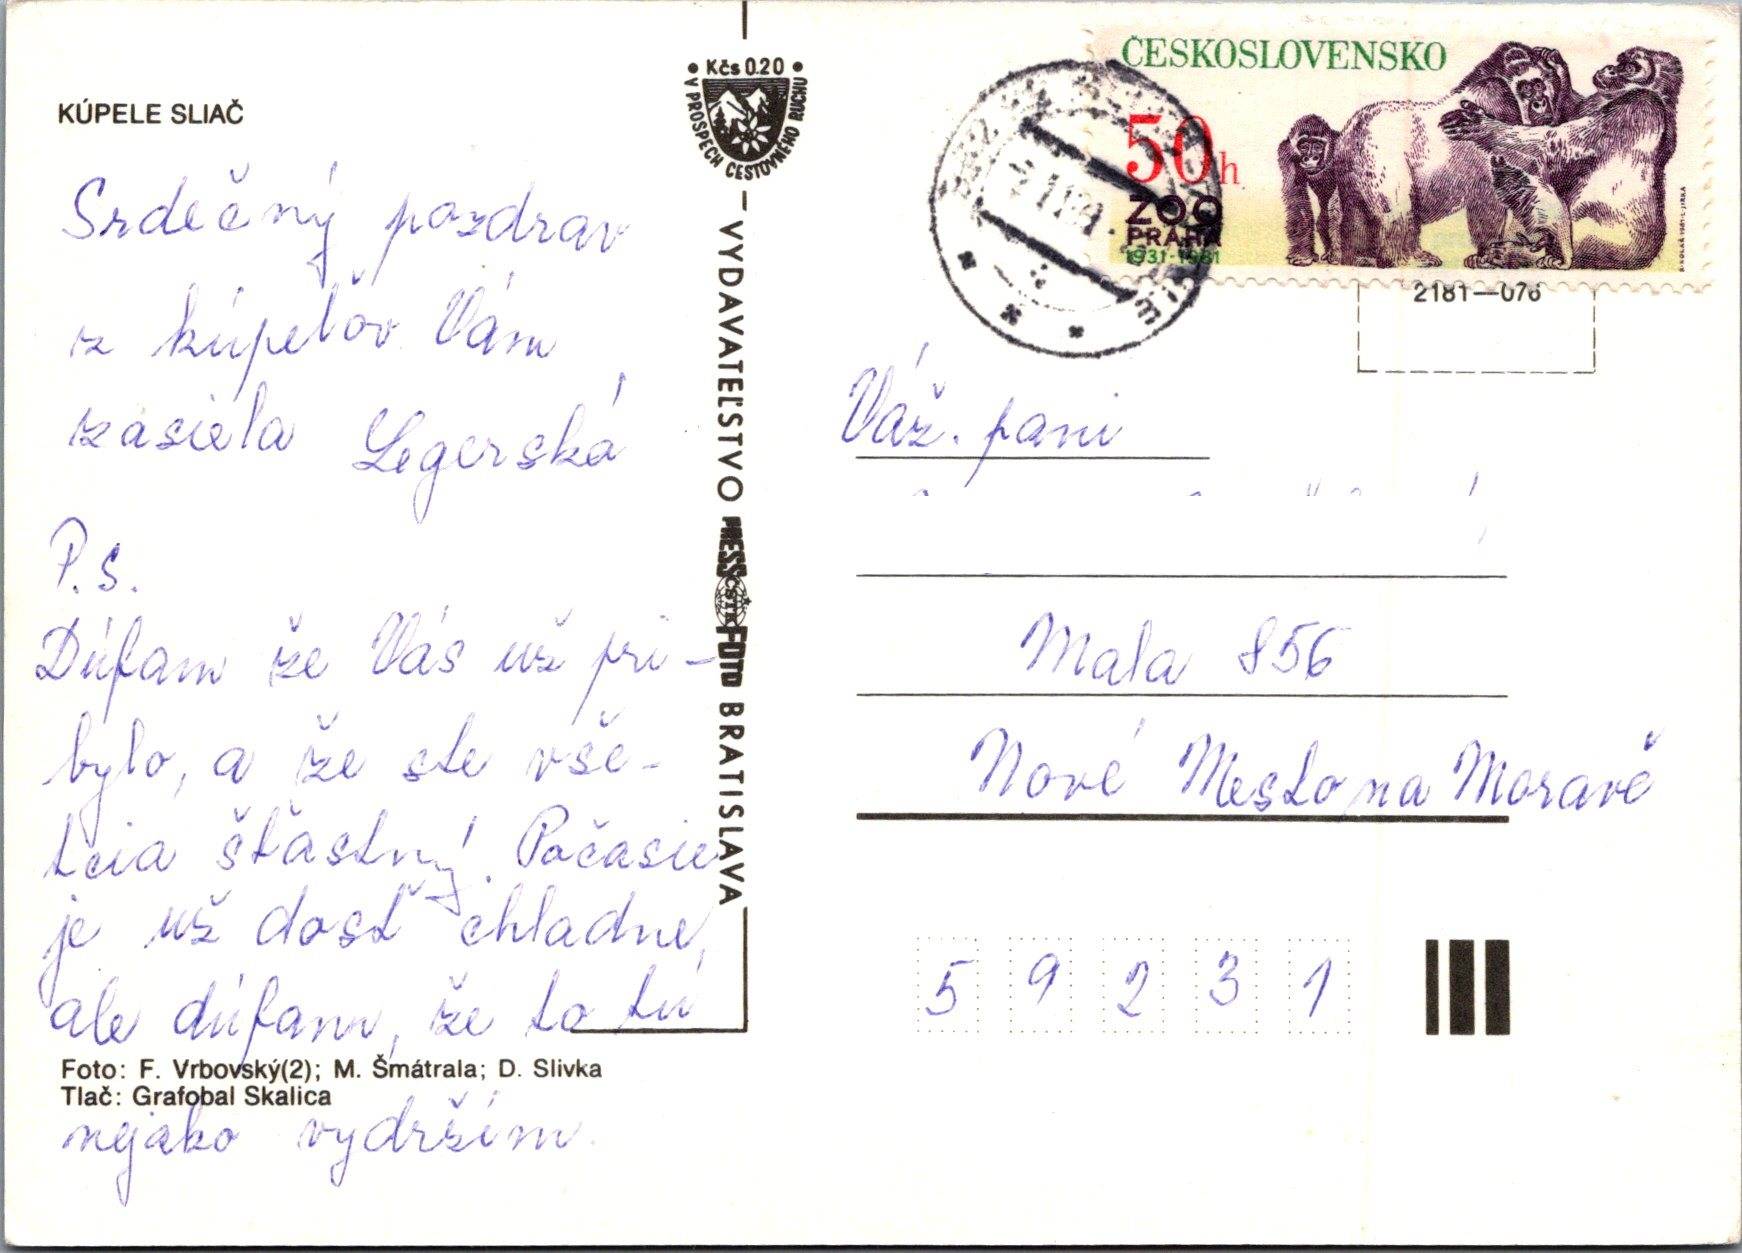 KÚPELE SLIAČ
Srdečný pozdrav
z kúpeľov Vám
zasiela Legerská
P.S.
Dúfam že Vás už pri-
bylo, a že ste vše-
tcia šťastný. Počasie
je už dosť chladne,
ale dúfam, že to tú
Foto: F. Vrbovský(2); M. Šmátrala; D. Slivka
Tlač: Grafobal Skalica
nejako vydržím.
Kčs 0.20
V PROSPECH CESTOVNÉHO RUCHU
VYDAVATEĽSTVO PRESSFOTO BRATISLAVA
ČSTK
ČESKOSLOVENSKO
50h
ZOO
PRAHA
1931-1981
2181—076
Váž. pani
Mala 856
Nové Mesto na Moravě
5 9 2 3 1